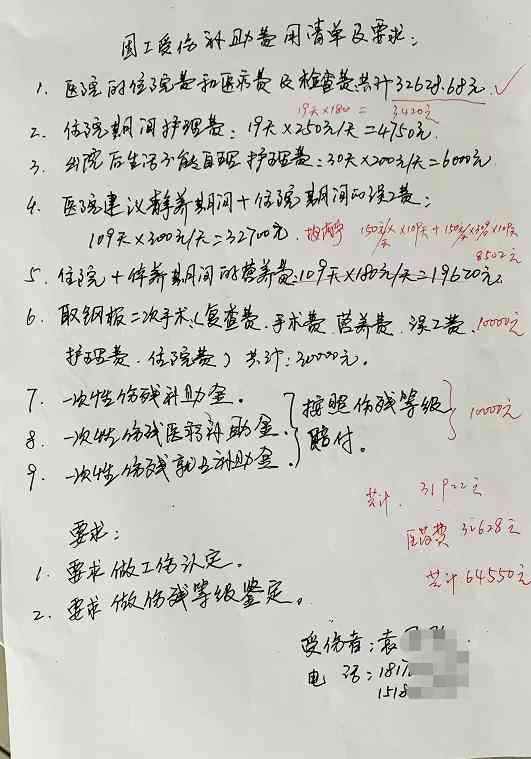 因工受伤补助费用清单及要求:
1. 医院的住院费和医疗费及检查费共计32628.68元. ✓
19天×180 = 3420元
2. 住院期间护理费: 19天×250元/天=4750元.
3. 出院后生活不能自理护理费: 30天×200元/天=6000元
4. 医院建议静养期间+住院期间的误工费:
109天×300元/天=32700元. 150元/天×109天+150元/天 8502元
5. 住院+停养期间的营养费: 109天×180元/天=19620元.
6. 取钢板二次手术(复查费.手术费.营养费.误工费. 10000元
护理费.住院费)共计:30000元.
7. 一次性伤残补助金.
8. 一次性伤残医疗补助金. 按照伤残等级赔付. 10000元
9. 一次性伤残就业补助金.
共计. 31922元
医药费 32628元
共计64550元
要求:
1. 要求做工伤认定.
2. 要求做伤残等级鉴定.
受伤者:袁
电 话:1817
1518